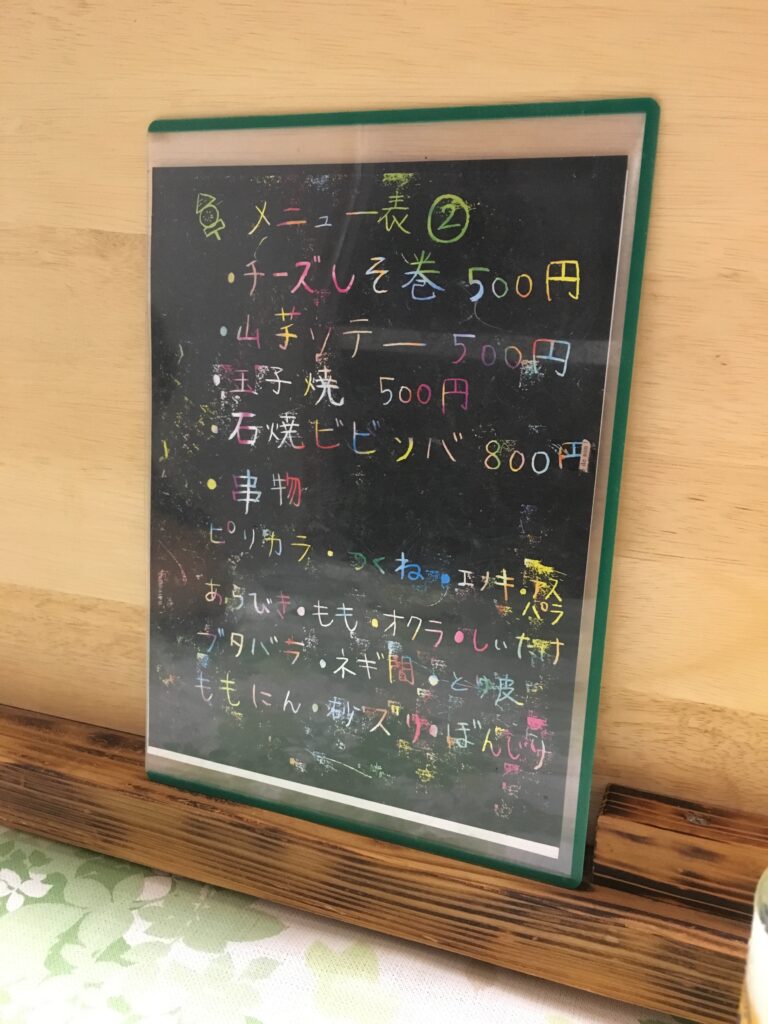 メニュー表 ②
・チーズしそ巻 500円
・山芋ソテー 500円
・玉子焼 500円
・石焼ビビンバ 800円
・串物
ピリカラ・つくね・エリンギ・アスパラ
あらびき・もも・オクラ・しいたけ
ブタバラ・ネギ間・とり皮
ももにん・砂ズリ・ぼんじり